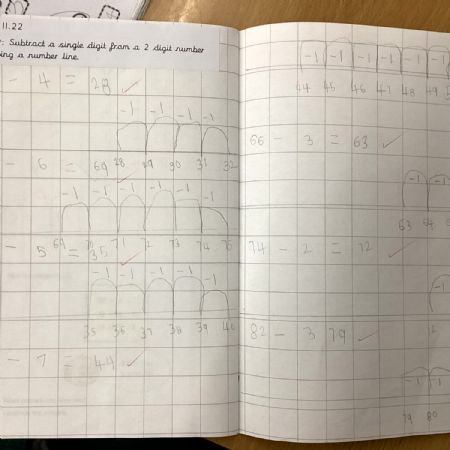 11.22
: Subtract a single digit from a 2 digit number
ing a number line.
- 4 = 28 ✓
-1 -1 -1 -1
28 29 30 31 32
- 6 = 69 ✓
-1 -1 -1 -1 -1 -1
69 70 71 72 73 74 75
- 5 = 35 ✓
-1 -1 -1 -1 -1
35 36 37 38 39 40
- 7 = 44 ✓
-1 -1 -1 -1 -1 -1
44 45 46 47 48 49
66 - 3 = 63 ✓
-1 -1
63
74 - 2 = 72 ✓
-1
82 - 3 79 ✓
-1 -1
79 80